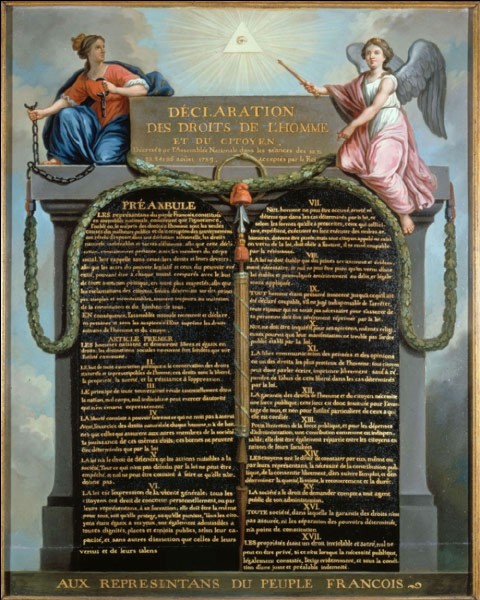 DÉCLARATION
DES DROITS DE L'HOMME
ET DU CITOYEN,
Décrétés par l'Assemblée Nationale dans les séances des 20, 21
23, 24 et 26 août 1789, acceptés par le Roi
PRÉAMBULE
LES représentans du peuple François, constitués
en assemblée nationale, considérant que l'ignorance,
l'oubli ou le mépris des droits de l'homme sont les seules
causes des malheurs publics et de la corruption des gouvernemens
ont résolu d'exposer dans une déclaration solemnelle, les droits
naturels, inaliénables et sacrés de l'homme; afin que cette décla-
ration, constamment présente à tous les membres du corps
social, leur rappelle sans cesse leurs droits et leurs devoirs;
afin que les actes du pouvoir législatif et ceux du pouvoir exé-
cutif, pouvant être à chaque instant comparés avec le but
de toute institution politique, en soient plus respectés; afin que
les réclamations des citoyens, fondées désormais sur des princi-
pes simples et incontestables, tournent toujours au maintien
de la constitution et du bonheur de tous.
EN conséquence, l'assemblée nationale reconnoit et déclare
en présence et sous les auspices de l'Etre suprême les droits
suivans de l'homme et du citoyen.
ARTICLE PREMIER
LES hommes naissent et demeurent libres et égaux en
droits, les distinctions sociales ne peuvent être fondées que sur
l'utilité commune.
II.
LE but de toute association politique est la conservation des droits
naturels et imprescriptibles de l'homme; ces droits sont la liberté,
la propriété, la sureté, et la résistance à l'oppression.
III.
LE principe de toute souveraineté réside essentiellement dans
la nation, nul corps, nul individu ne peut exercer d'autorité
qui n'en émane expressément.
IV.
LA liberté consiste à pouvoir faire tout ce qui ne nuit pas à autrui
Ainsi, l'exercice des droits naturels de chaque homme, n'a de bor-
nes que celles qui assurent aux autres membres de la société
la jouissance de ces mêmes droits; ces bornes ne peuvent
être déterminées que par la loi
V.
LA loi n'a le droit de défendre que les actions nuisibles à la
société. Tout ce qui n'est pas défendu par la loi ne peut être
empêché, et nul ne peut être contraint à faire ce qu'elle
n'ordonne pas.
VI.
LA loi est l'expression de la volonté générale; tous les
citoyens ont droit de concourir personnellement, ou par
leurs représentans, à sa formation; elle doit être la même
pour tous, soit qu'elle protege, soit qu'elle punisse. Tous les citoy-
ens étant égaux à ses yeux, sont également admissibles à
toutes dignités, places et emplois publics, selon leur ca-
pacité, et sans autres distinction que celles de leurs
vertus et de leurs talens
VII.
NUL homme ne peut être accusé, arrêté, ni
détenu que dans les cas déterminés par la loi, et
selon les formes qu'elle a prescrites, ceux qui sollici-
tent, expédient, exécutent ou font exécuter des ordres ar-
bitraires, doivent être punis; mais tout citoyen appelé ou saisi
en vertu de la loi, doit obéir à l'instant, il se rend coupable
par la résistance.
VIII.
LA loi ne doit établir que des peines strictement et évidem-
ment nécessaires, et nul ne peut être puni qu'en vertu d'une
loi établie et promulguée antérieurement au délit, et légale-
ment appliquée.
IX.
TOUT homme étant présumé innocent jusqu'à ce qu'il ait
été déclaré coupable, s'il est jugé indispensable de l'arrêter,
toute rigueur qui ne seroit pas nécessaire pour s'assurer de
sa personne doit être sévèrement réprimée par la loi.
X.
NUL ne doit être inquiété pour ses opinions, mêmes religi-
euses pourvu que leur manifestation ne trouble pas l'ordre
public établi par la loi.
XI.
LA libre communication des pensées et des opinions
est un des droits les plus précieux de l'homme: tout citoyen
peut donc parler, écrire, imprimer librement: sauf à ré-
pondre de l'abus de cette liberté dans les cas déterminés
par la loi.
XII.
LA garantie des droits de l'homme et du citoyen nécessite
une force publique; cette force est donc instituée pour l'avan-
tage de tous, et non pour l'utilité particuliere de ceux à qui
elle est confiée.
XIII.
POUR l'entretien de la force publique, et pour les dépenses
d'administration, une contribution commune est indispen-
sable; elle doit être également répartie entre les citoyens en
raison de leurs facultés.
XIV.
LES citoyens ont le droit de constater par eux mêmes ou
par leurs représentans, la nécessité de la contribution pub-
lique, de la consentir librement, d'en suivre l'emploi, et d'en
déterminer la quotité, l'assiette, le recouvrement et la durée.
XV.
LA société a le droit de demander compte à tout agent
public de son administration.
XVI.
TOUTE société, dans laquelle la garantie des droits n'est
pas assurée, ni la séparation des pouvoirs déterminée,
n'a point de constitution.
XVII.
LES propriétés étant un droit inviolable et sacré, nul ne
peut en être privé, si ce n'est lorsque la nécessité publique,
légalement constatée, l'exige évidemment, et sous la condi-
tion d'une juste et préalable indemnité.
AUX REPRESENTANS DU PEUPLE FRANCOIS